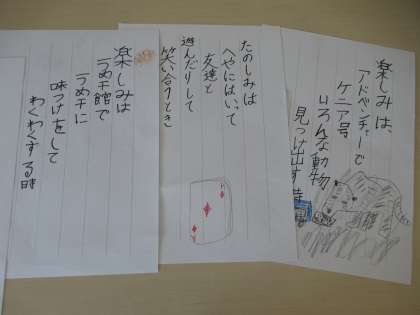 楽しみは、
アドベンチャーで
ケニア号
いろんな動物
見つけ出す時
たのしみは
へやにはいて
友達と
遊んだりして
笑い合うとき
楽しみは
うめ干館で
うめ干に
味つけをして
わくわくする時